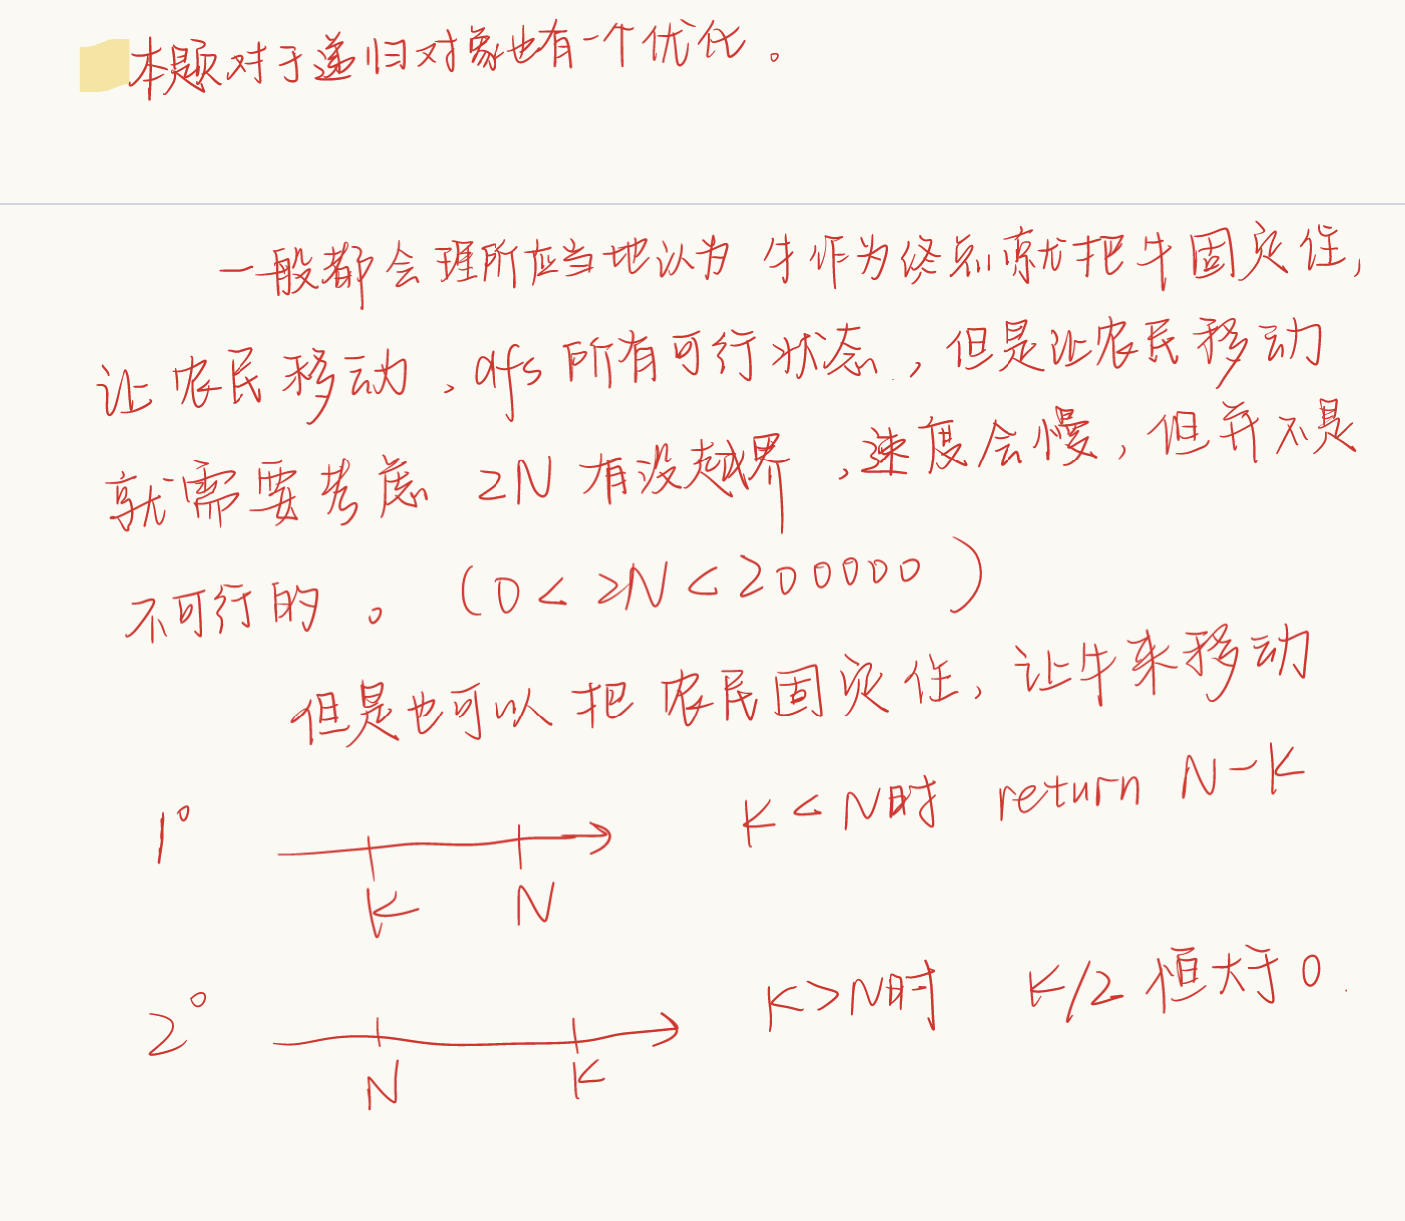 本题对于递归对象也有一个优化。
一般都会理所应当地认为 牛作为终点就把牛固定住,
让农民移动、dfs所有可行状态,但是让农民移动
就需要考虑 2N 有没越界,速度会慢,但并不是
不可行的。(0<2N<200000)
但是也可以把农民固定住,让牛来移动
1° K<N时 return N-K
K N
2° K>N时 K/2 恒大于0.
N K